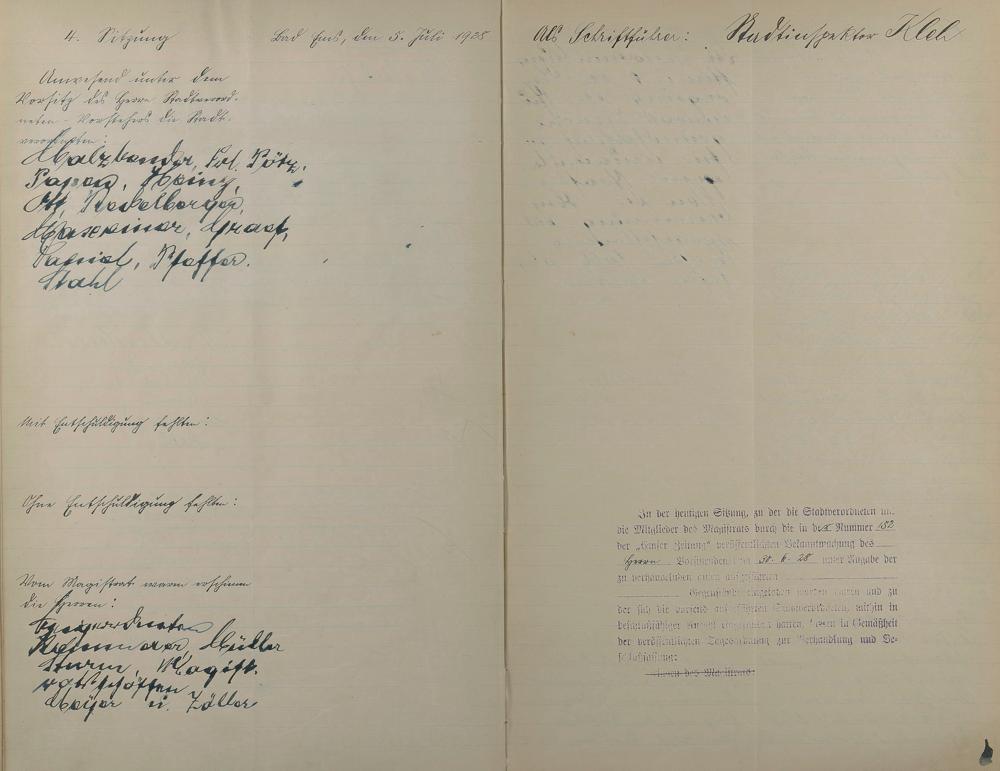 4. Sitzung
Bad Ems, den 5. Juli 1928
Anwesend unter dem
Vorsitz des Herrn Stadtverord-
neten-Vorstehers die Stadt-
verordneten:
Malzbender, Pötz,
Papen, Heinz,
Ott,
Graef,
Pfeffer.
Stahl
Mit Entschuldigung fehlten:
Ohne Entschuldigung fehlten:
Vom Magistrat waren erschienen
die Herren:
Beigeordneten
Müller
Sturm, Magist.
schöffen
Meyer u. Zöller
Als Schriftführer: Stadtinspektor
In der heutigen Sitzung, zu der die Stadtverordneten und
die Mitglieder des Magistrats durch die in der Nummer 152
der „Emser Zeitung“ veröffentlichten Bekanntmachung des
Herrn Vorstehers 30. 6. 28 unter Angabe der
zu verhandelnden
Gegenstände eingeladen worden waren und zu
der sich die Stadtverordneten, mithin in
beschlußfähiger Anzahl eingefunden hatten, in Gemäßheit
der veröffentlichten Tagesordnung zur Verhandlung und Be-
schlußfassung:
des Magistrats: